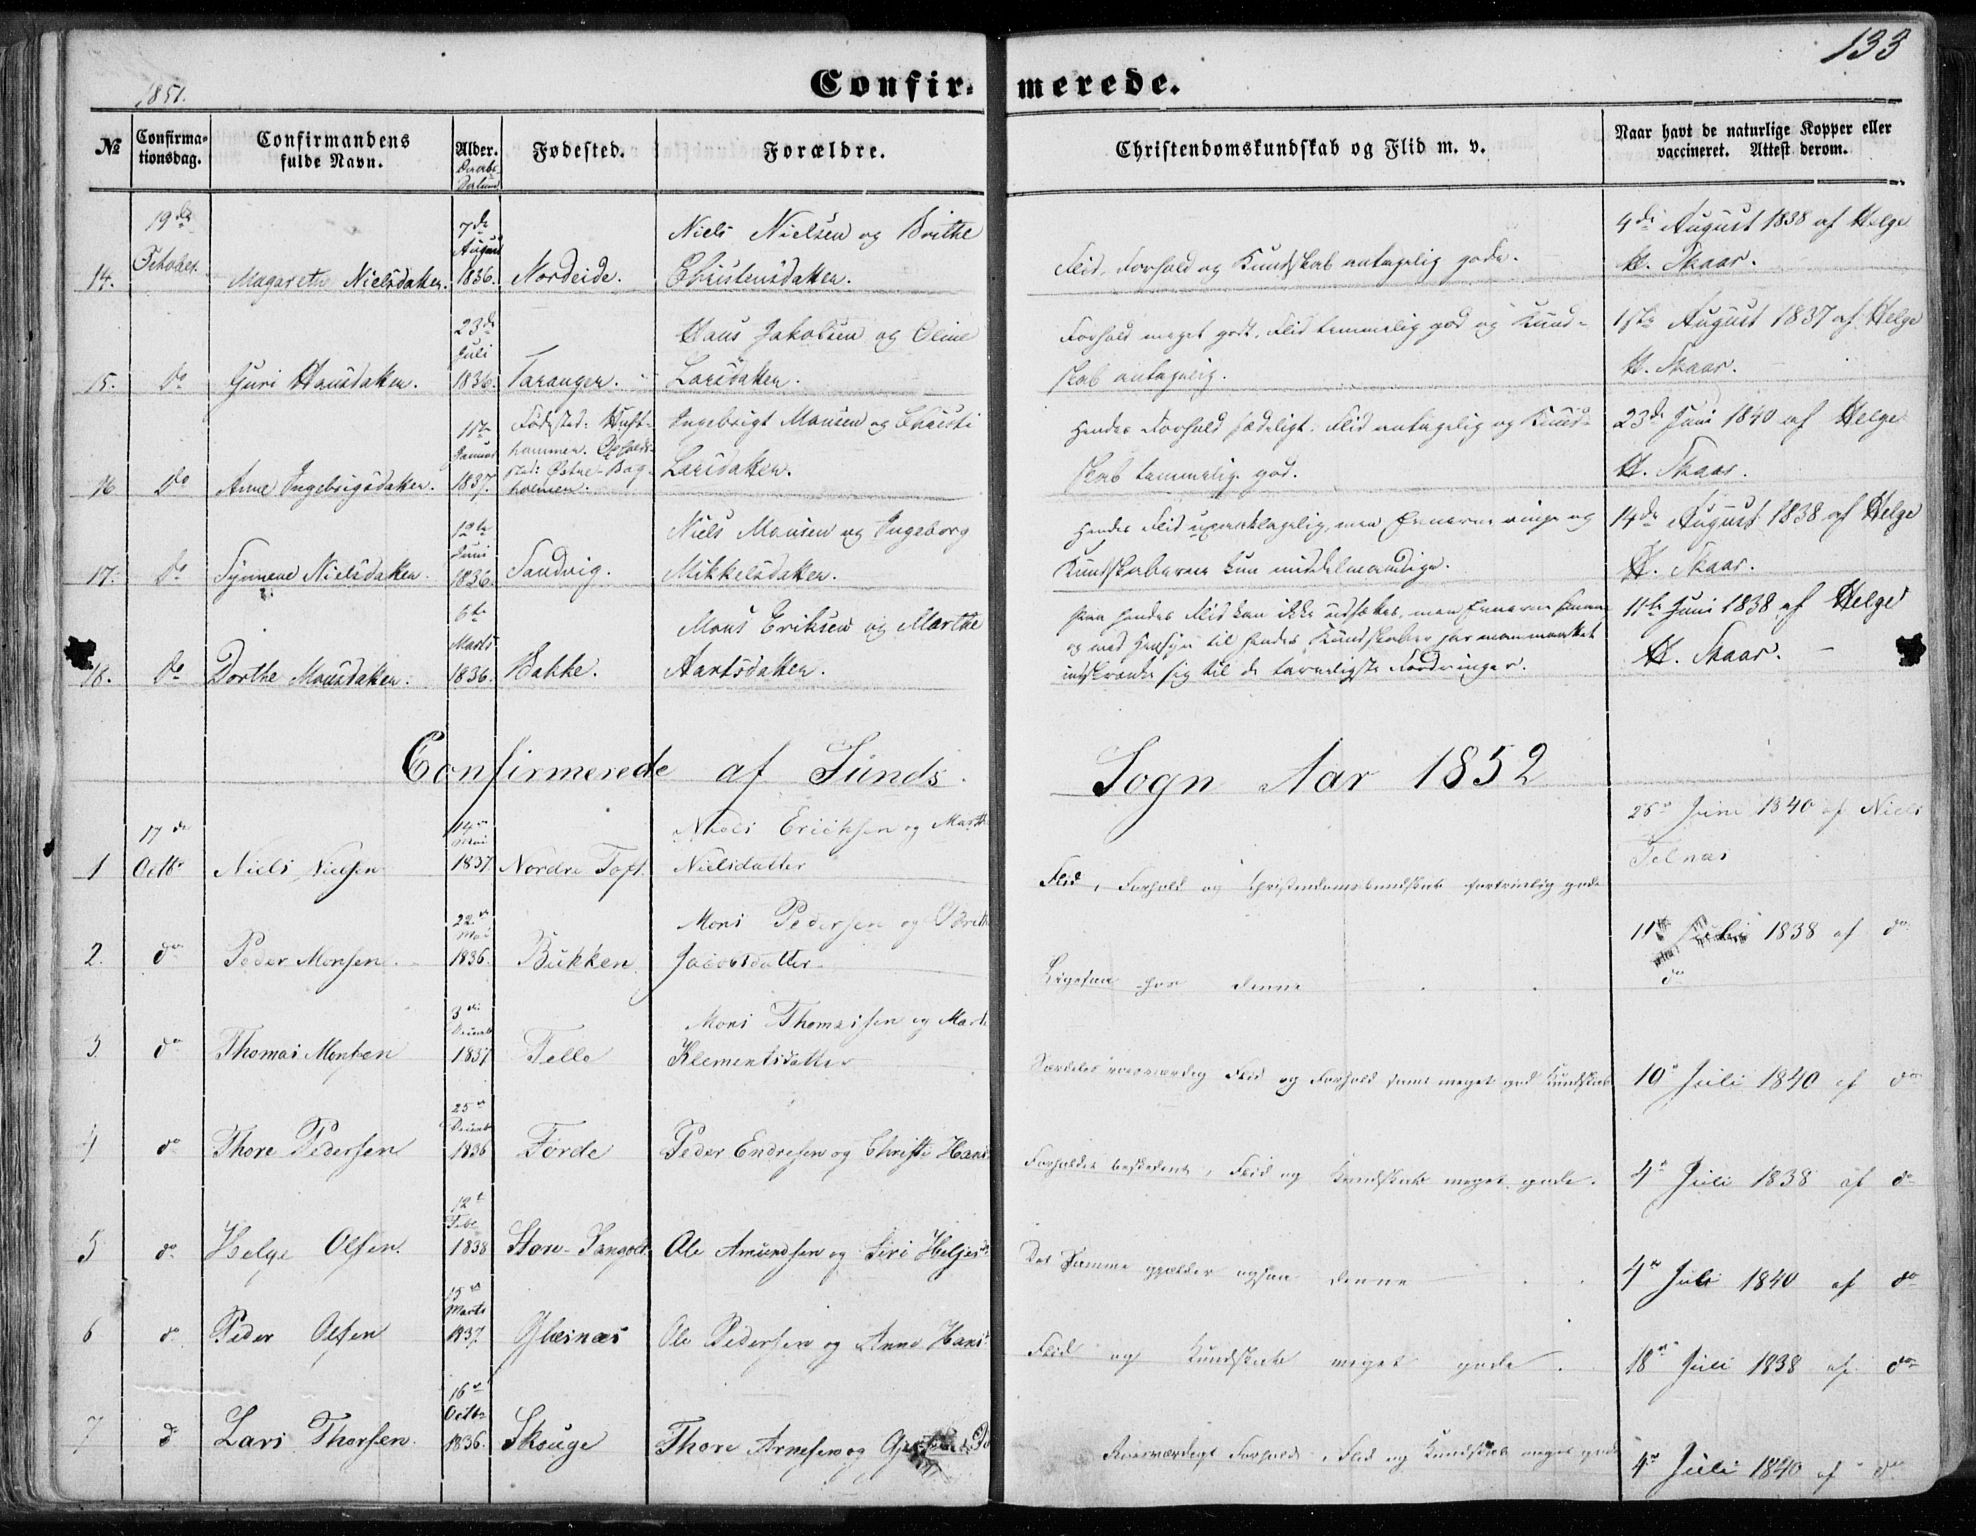 133
1851.
Confirmerede.
No
Confirmationsdag.
Confirmandens fulde Navn.
Alder.
Fødested.
Forældre.
Christendomskundskab og Flid m. v.
Naar havt de naturlige Kopper eller vaccineret. Attest derom.
14. 19de October Magarethe Nielsdatter. 7de August 1836. Nordeide. Niels Nielsen og Brithe Christensdatter. Flid, Forhold og Kundskab antagelig gode. 9de August 1838 af Helge H. Skaar.
15. Do Guri Hansdatter. 23de Juli 1836. Taranger. Hans Jakobsen og Oline Larsdatter. Forhold meget godt, Flid temmelig god og Kundskab antagelig. 1ste August 1837 af Helge H. Skaar.
16 Do Anne Ingebrigsdatter. 11te Januar 1837. Fødested: Huft-hammer. Opholds-sted: Østre-Bog-holmen. Ingebrigt Monsen og Christi Larsdatter. Hendes Forhold sædeligt. Flid antagelig og Kundskab temmelig god. 23de Juni 1840 af Helge H. Skaar.
17. Do Synneve Nielsdatter. 12te Juni 1836. Sandvig. Niels Monsen og Ingeborg Mikkelsdatter. Hendes Flid upaaklagelig, men Evnerne ringe og Kundskaberne kun middelmaadige. 14de August 1838 af Helge H. Skaar.
18. Do Dorthe Monsdatter. 6te Marts 1836. Bakke. Mons Eriksen og Marthe Aartsdatter. Paa hendes Flid kan ikke udsættes, men Evnerne og med Hensyn til hendes Kundskaber har man maattet indskrænke sig til de tarveligste Fordringer. 11te Juni 1838 af Helge H. Skaar.
Confirmerede af Sunds Sogn Aar 1852
1 17de Octbr Niels Nielsen 14de Mai 1837 Nordre Toft. Niels Erichsen og Marthe Nielsdatter Flid, Forhold og Christendomskundskab fortrinlig gode 26de Juni 1840 af Niels Telnæs
2. do Peder Monsen 22de Mai 1836. Bukken Mons Pedersen og Brithe Jacobsdatter Ligesaa hos denne 11te 1838 af do do
3. do Thomas Monsen 3de Decemb 1837 Telle Mons Thomassen og Marthe Klementsdatter Særdeles rosværdig Flid og Forhold samt meget god Kundskab 10de Juli 1840 af do
4 do Thore Pedersen 25de Decemb 1836 Førde Peder Endresen og Christi Hans Forholdet beskedent, Flid og Kundskab meget gode. 4de Juli 1838 af do
5 do Helge Olsen. 12te Febr 1838 Store-Sangolt Ole Amundsen og Siri Helgesd Det Samme gjælder ogsaa denne 4de Juli 1840 af do
6 do Peder Olsen 15de Marts 1837. Glesnæs Ole Pedersen og Anne Hansd Flid og Kundskab meget gode. 18de Juli 1838 af do
7 do Lars Thorsen. 16de Octbr 1836. Skouge Thore Arnesen og Rosværdigt Forhold, Flid og Kundskab meget gode 4de Juli 1840 af do